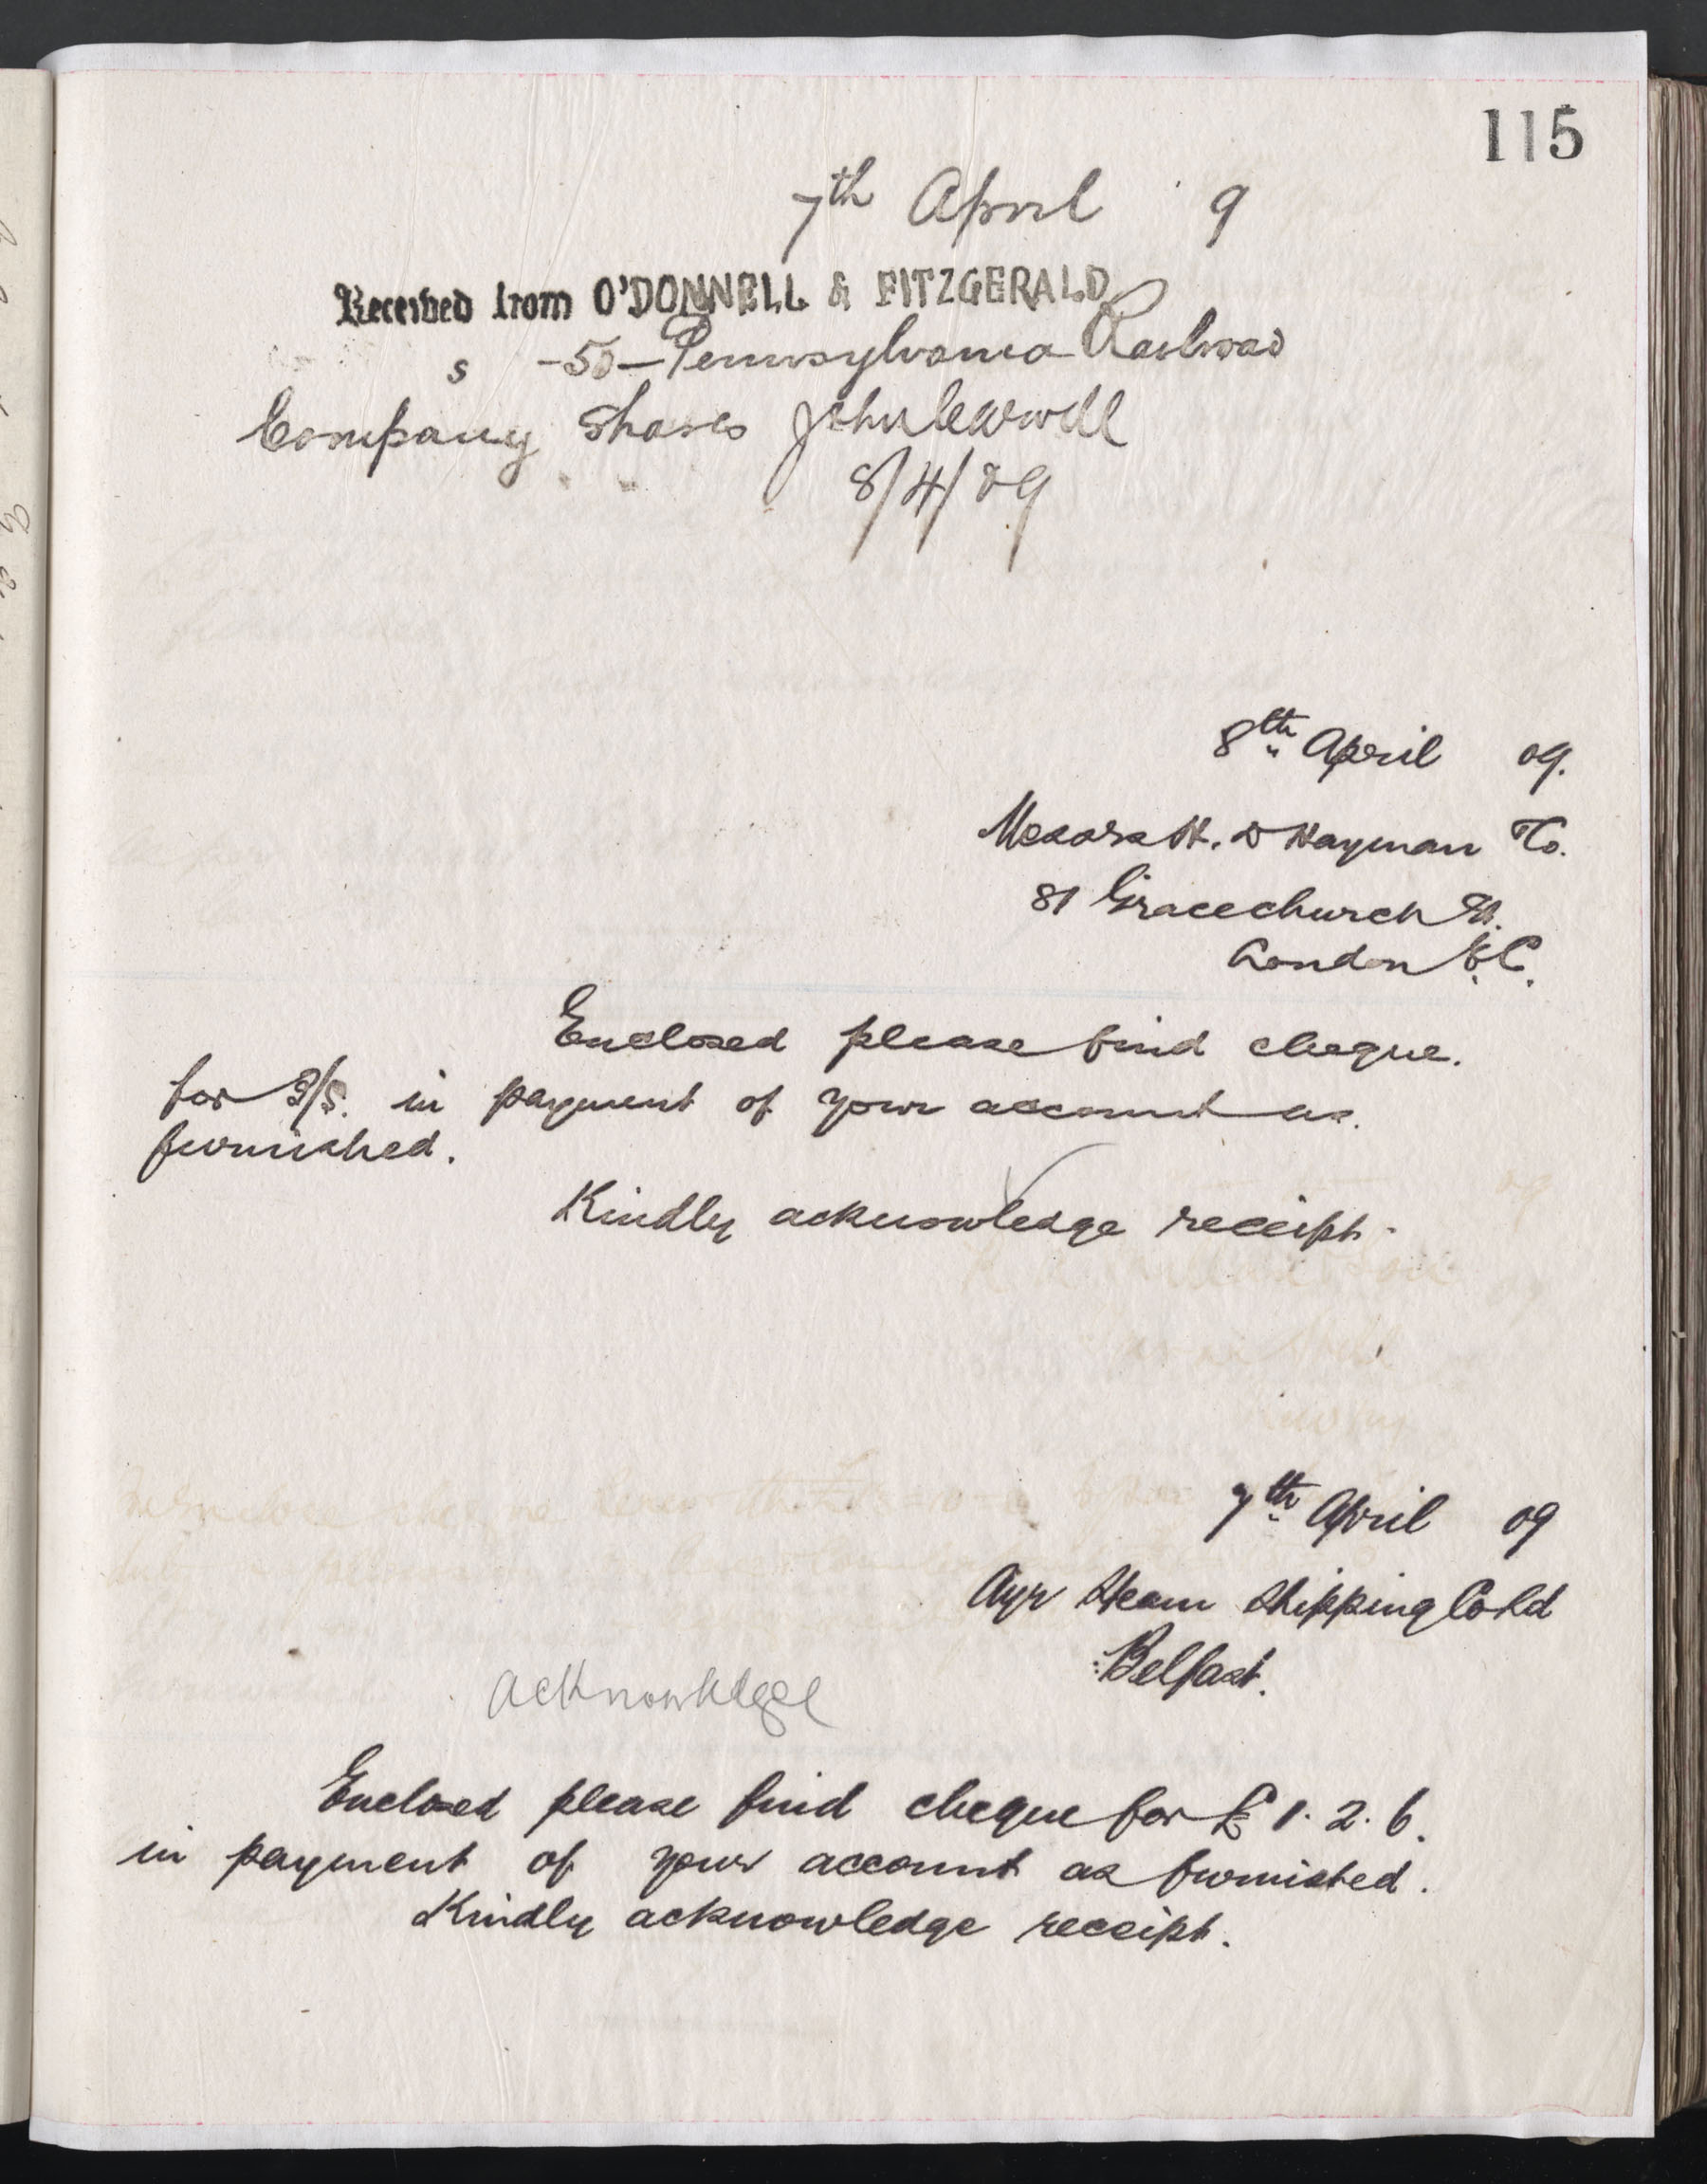 115
7th April 9
Received from O'DONNELL & FITZGERALD
s -50- Pennsylvania Railroad
Company Shares John
8/4/09
8th April 09.
Messrs H. D Hayman & Co.
81 Gracechurch St.
London E.C.
Enclosed please find cheque.
for 3/5. in payment of your account as.
furnished.
Kindly acknowledge receipt.
7th April 09
Ayr Steam Shipping Co Ld
Belfast.
acknowledge
Enclosed please find cheque for £1.2.6.
in payment of your account as furnished.
Kindly acknowledge receipt.